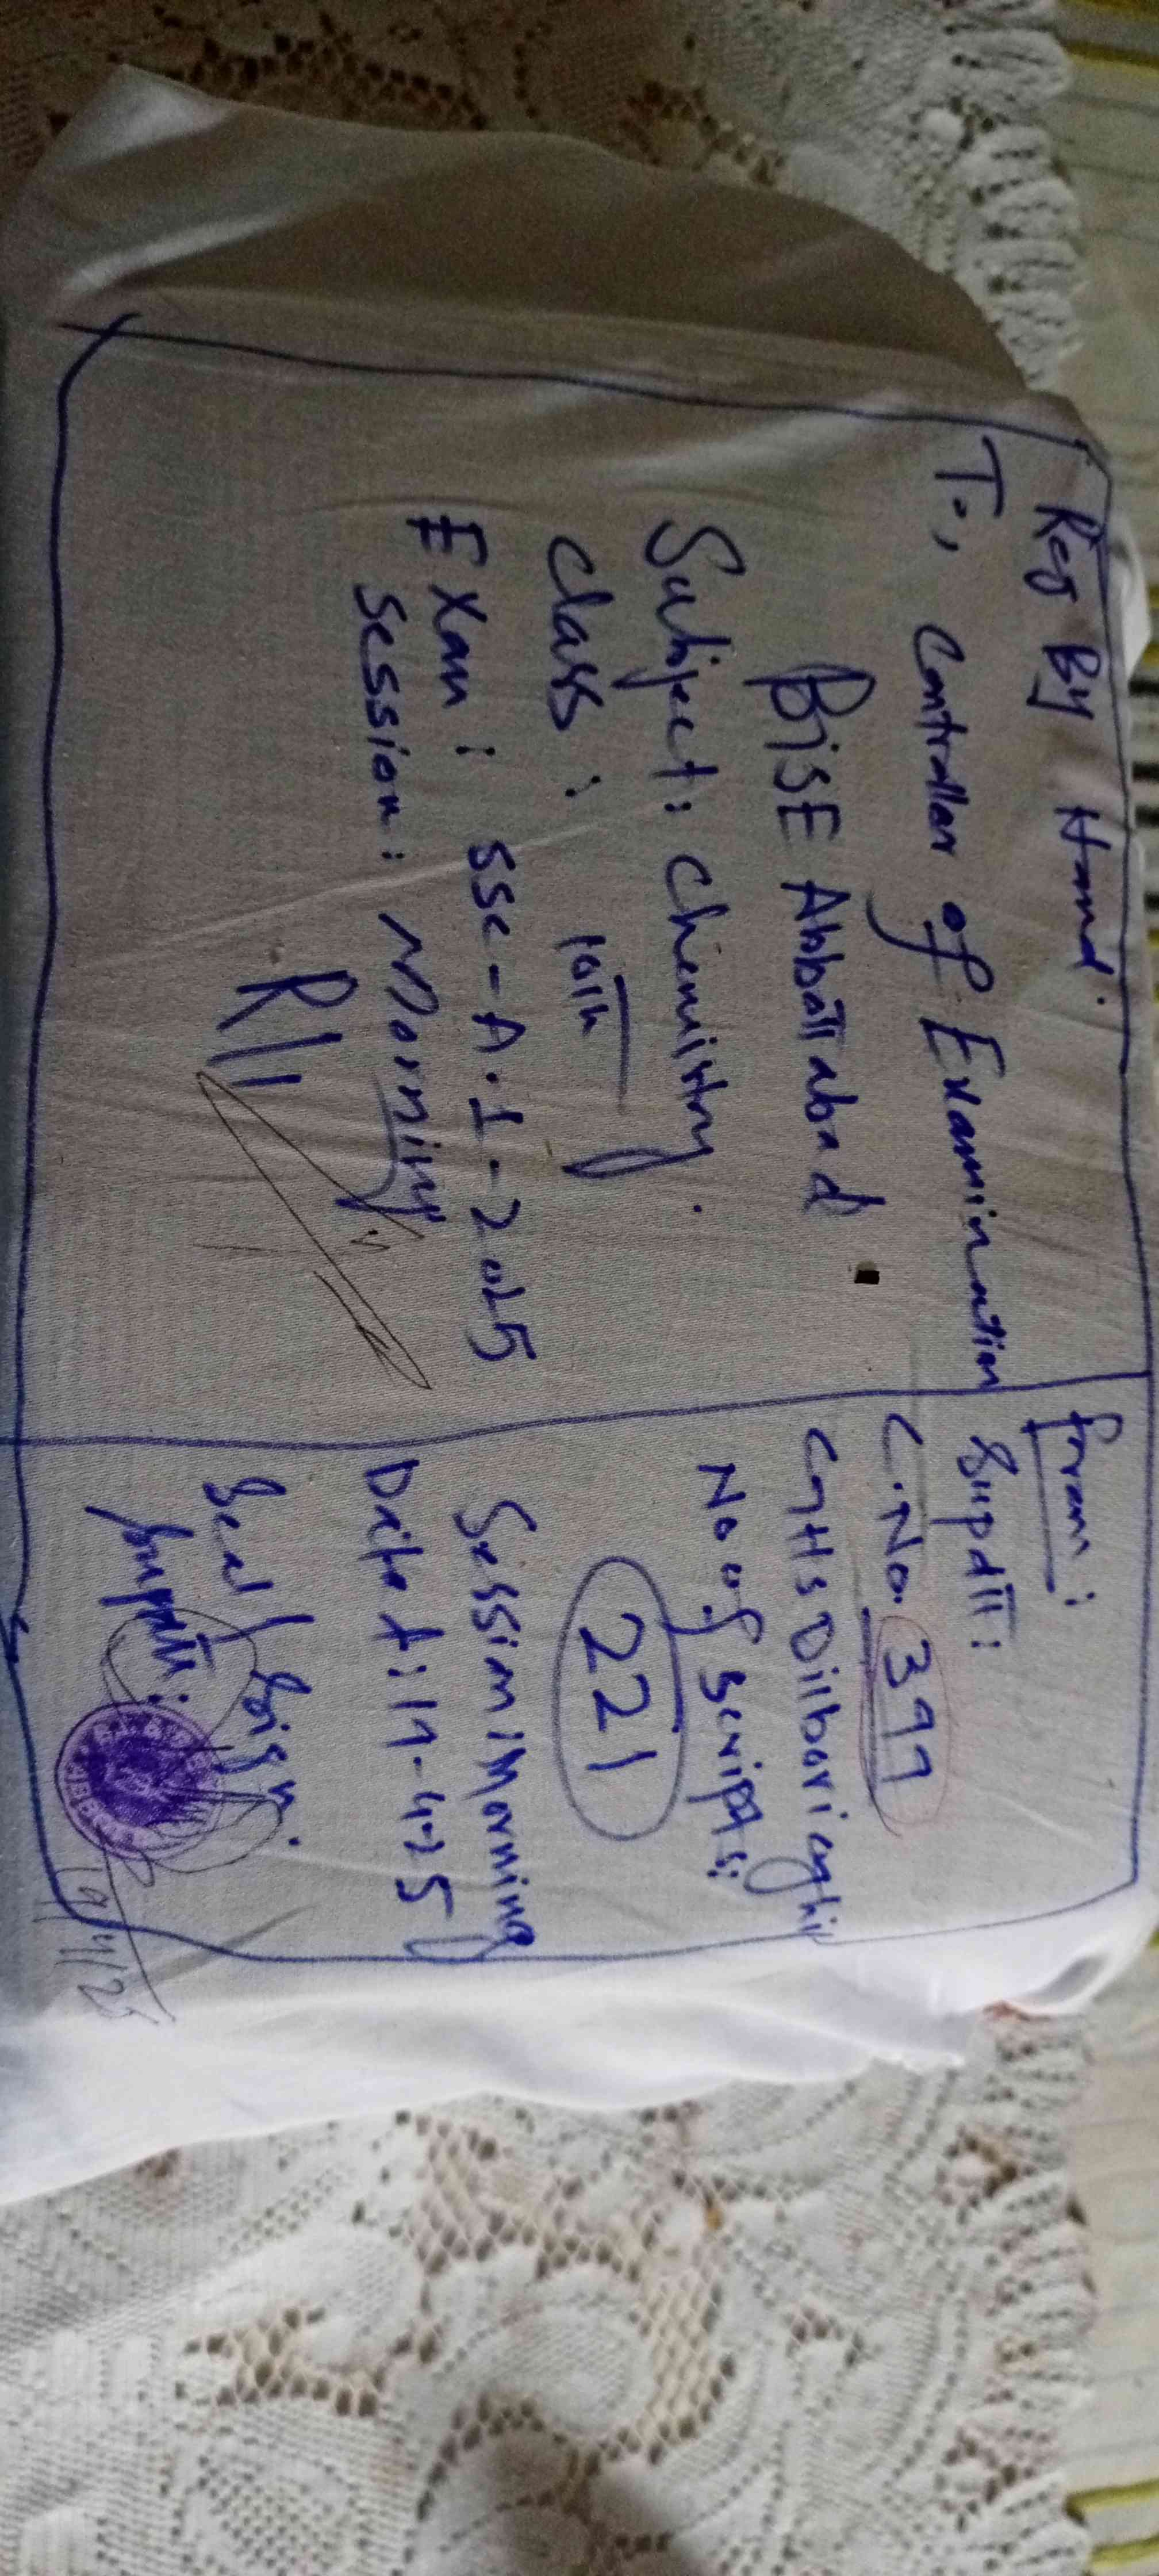 Reg By Hand.
To, Controller of Examination
BISE Abbottabad
Subject: Chemistry.
Class: 10th
Exam: SSC-A.I-2025
Session: Morning
From:
Supdtt:
C.No. 397
GGHS Dilbori
No of Scripts:
221
Session: Morning
Date: 19-4-25
Seal / Sign.
Supdtt:
19/4/25